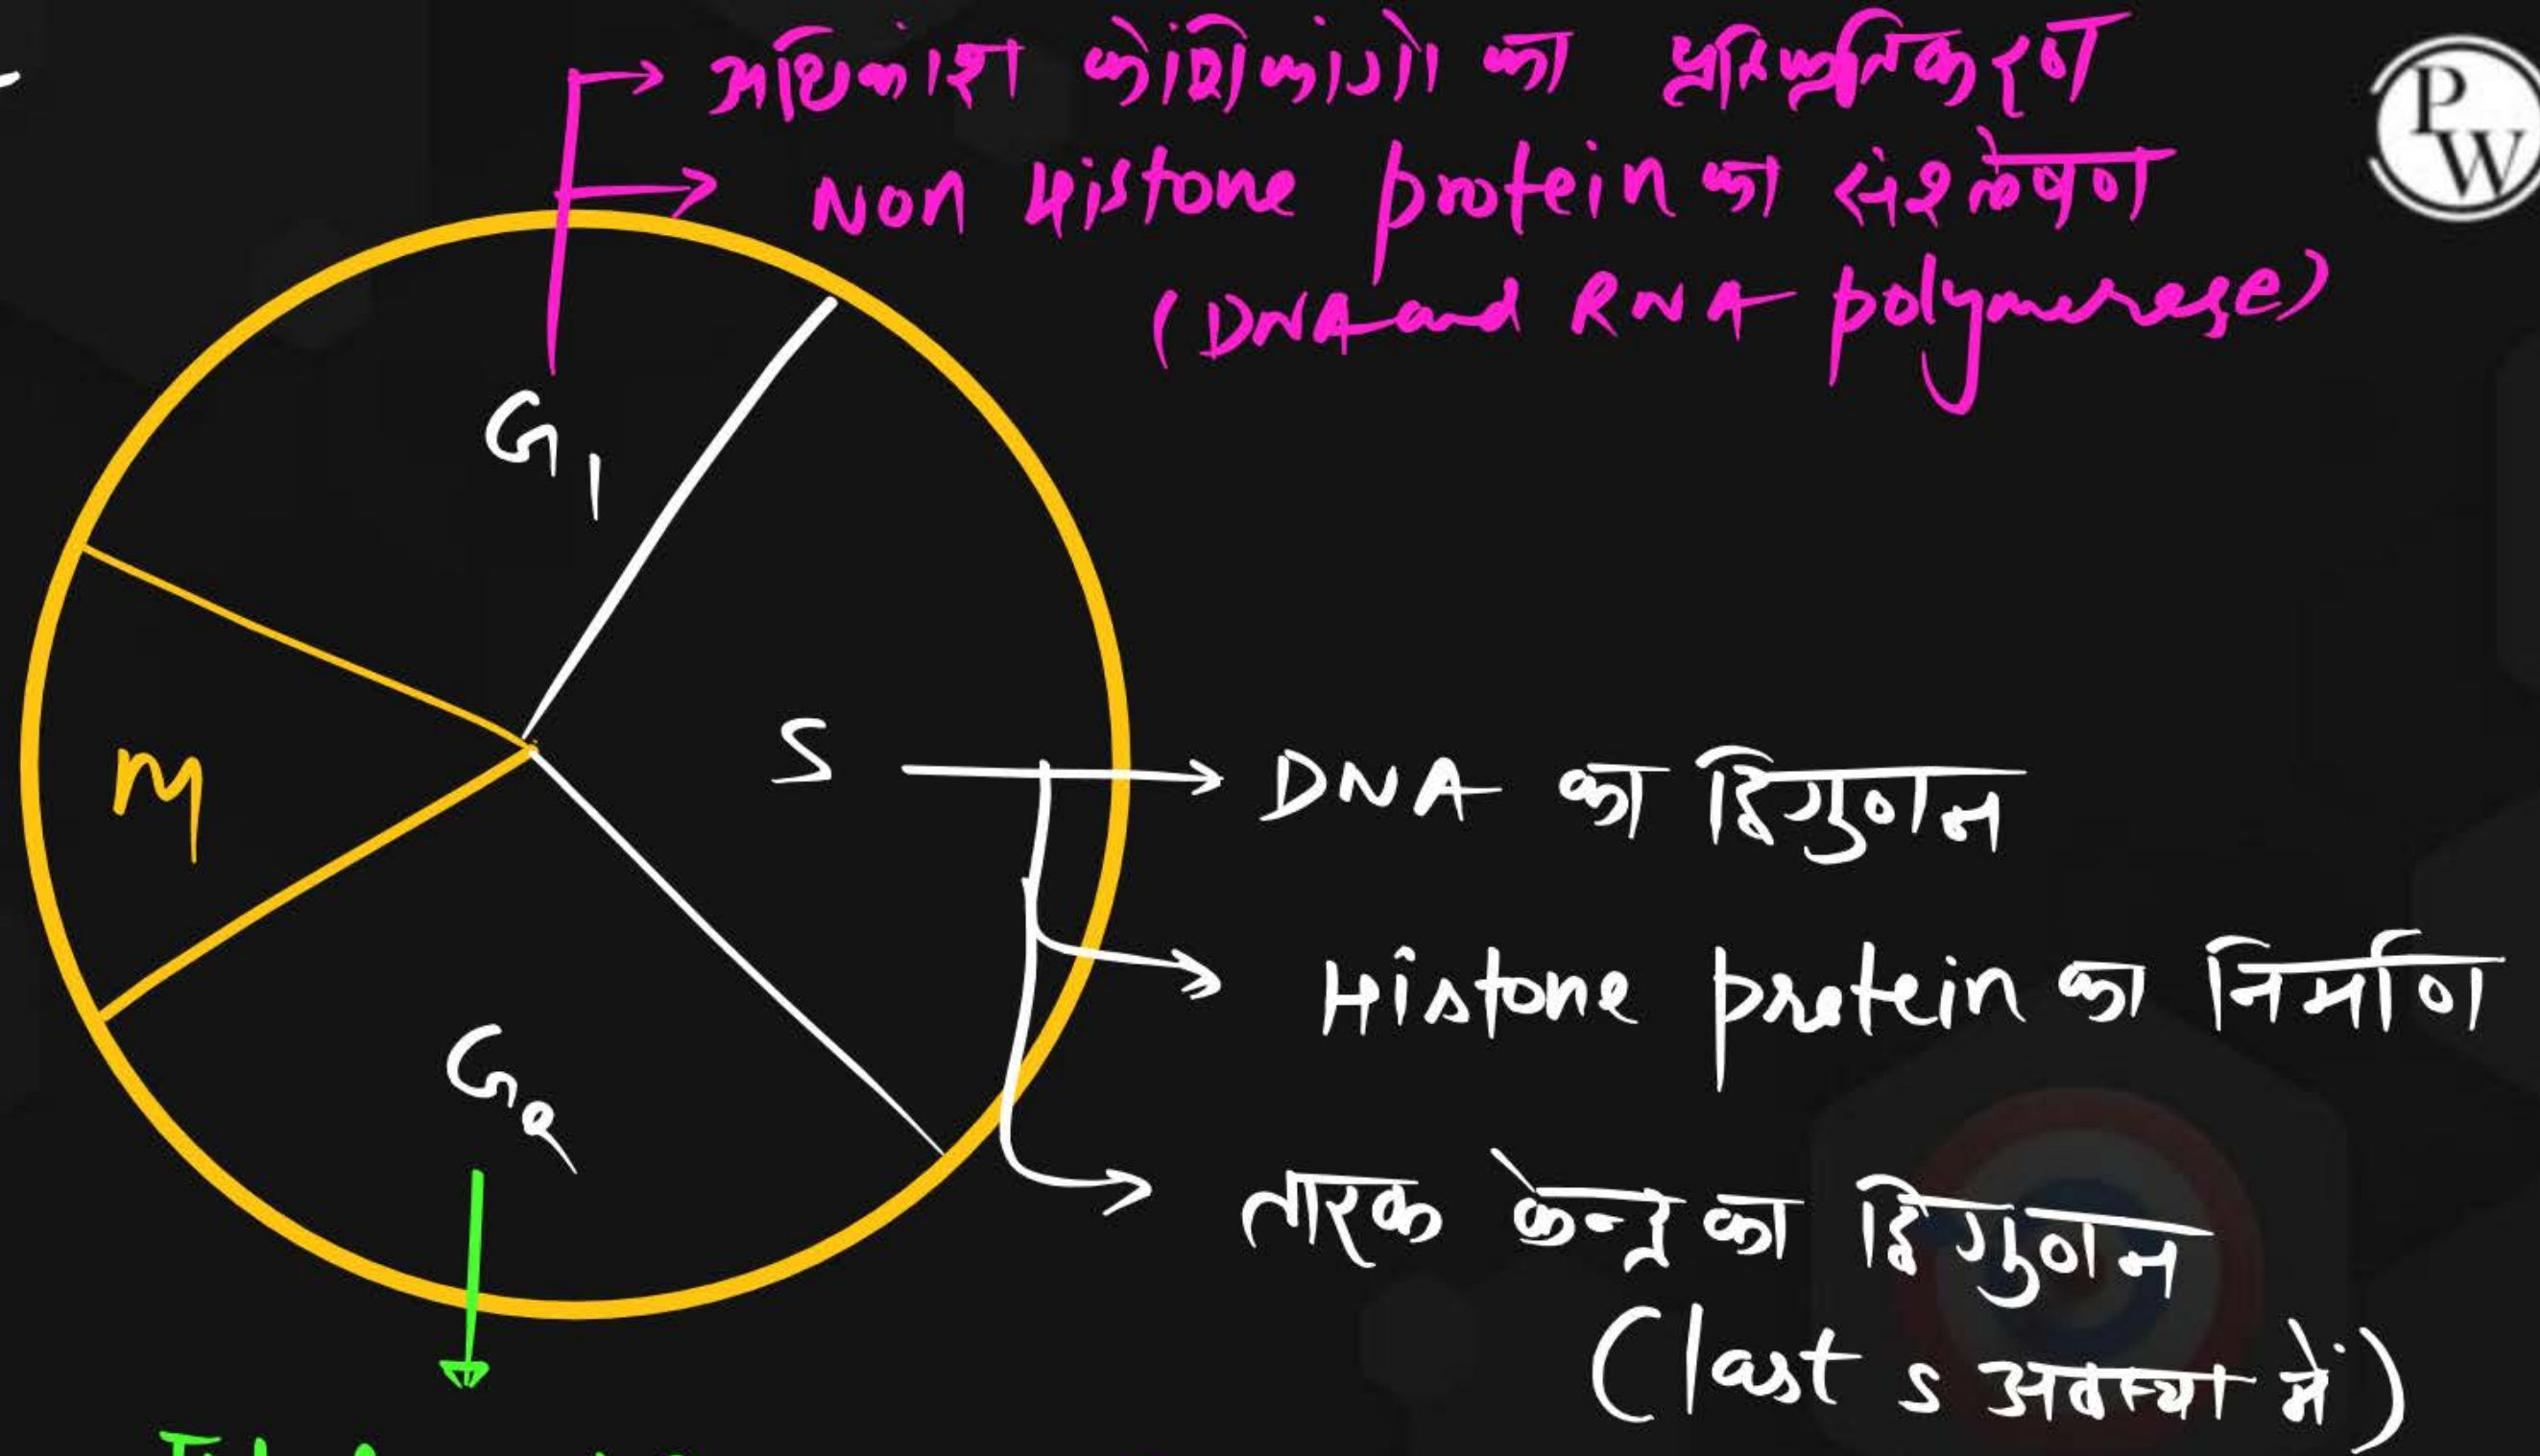 अधिकांश कोशिकांगो का प्रतिकृतिकरण
Non Histone protein का संश्लेषण
(DNA and RNA polymerese)
PW
G1
S
DNA का द्विगुणन
M
Histone protein का निर्माण
G2
तारक केन्द्र का द्विगुणन
(last s अवस्था में)